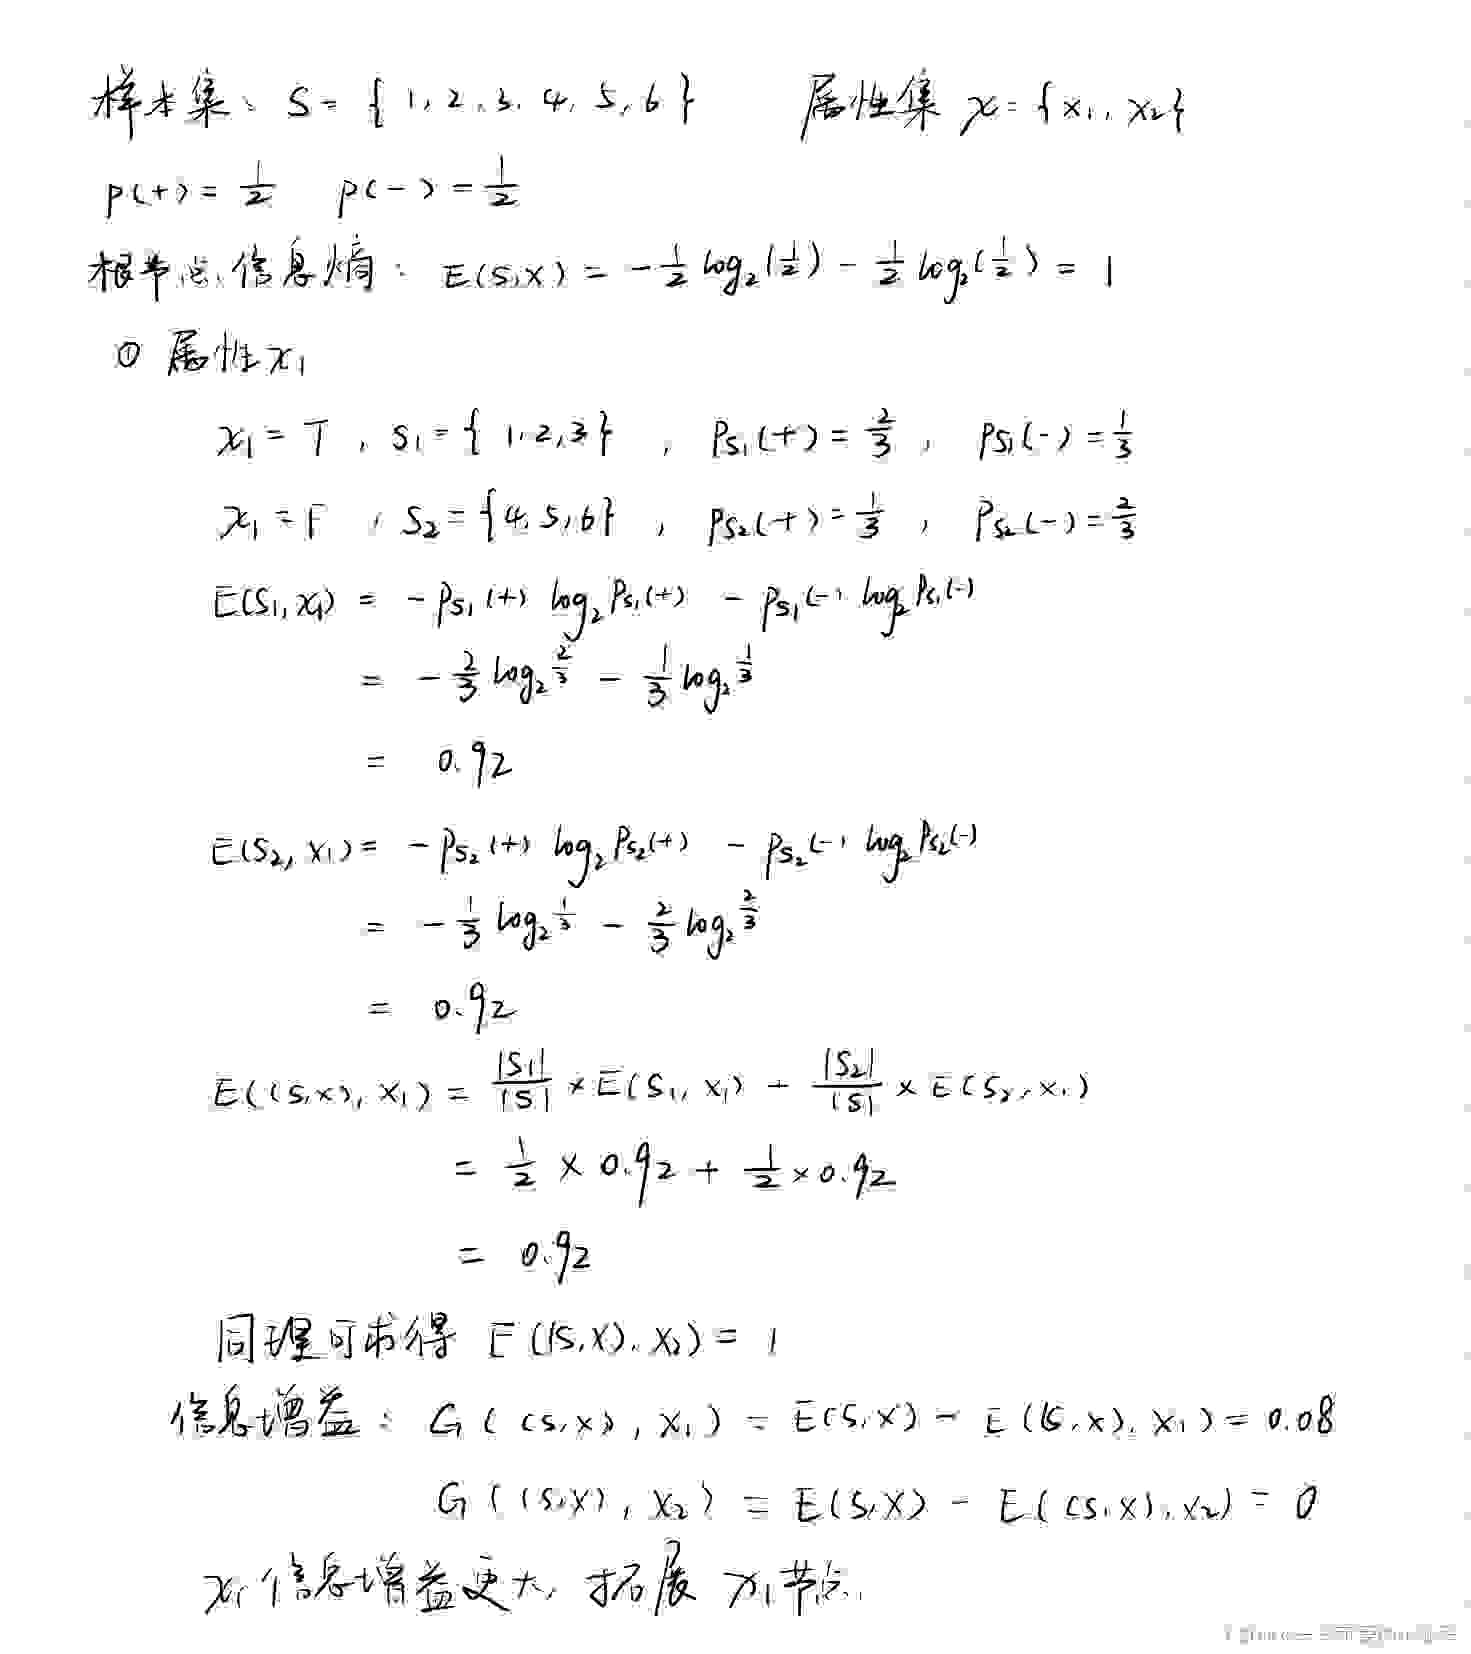 样本集: S = { 1, 2, 3, 4, 5, 6 } 属性集 x = { x₁, x₂ }
P(+) = 1/2 P(-) = 1/2
根节点信息熵: E(S,X) = -1/2 log₂(1/2) - 1/2 log₂(1/2) = 1
① 属性x₁
x₁ = T , S₁ = { 1, 2, 3 } , Ps₁(+) = 2/3 , Ps₁(-) = 1/3
x₁ = F , S₂ = { 4, 5, 6 } , Ps₂(+) = 1/3 , Ps₂(-) = 2/3
E(S₁, x₁) = -Ps₁(+) log₂ Ps₁(+) - Ps₁(-) log₂ Ps₁(-)
= -2/3 log₂ 2/3 - 1/3 log₂ 1/3
= 0.92
E(S₂, x₁) = -Ps₂(+) log₂ Ps₂(+) - Ps₂(-) log₂ Ps₂(-)
= -1/3 log₂ 1/3 - 2/3 log₂ 2/3
= 0.92
E((S,X), X₁) = |S₁|/|S| × E(S₁, X₁) + |S₂|/|S| × E(S₂, X₁)
= 1/2 × 0.92 + 1/2 × 0.92
= 0.92
同理可求得 E((S,X), X₂) = 1
信息增益: G((S,X), X₁) = E(S,X) - E((S,X), X₁) = 0.08
G((S,X), X₂) = E(S,X) - E((S,X), X₂) = 0
x₁信息增益更大, 拓展 x₁节点.